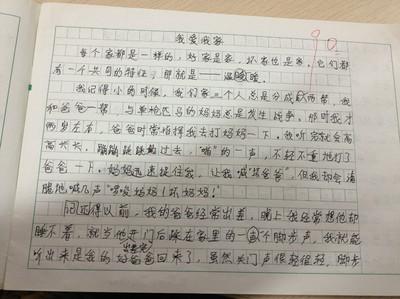 我爱我家
每个家都是一样的，好家是家，坏家也是家，它们都
有一个共同的特征，那就是——温暖。
我记得小的时候，我们家三个人总是分成两帮，我
和爸爸一帮，与单枪匹马的妈妈总是发生战争。那时我才
两岁左右，爸爸时常指挥我去打妈妈一下，我听完就会高
高兴兴，蹦蹦跳跳地过去，"啪"的一声，不轻不重地打了
爸爸一下。妈妈迅速捉住我，让我喊"坏爸爸"，但我却会清
脆地喊几声"妈妈！坏妈妈！"
记得以前，我的爸爸经常出差，晚上我经常想他却
睡不着，就当他开门后踩在家里的一个脚步声，我就能
听出来是我的好爸爸回来了，虽然关门声很轻很轻，脚步
90